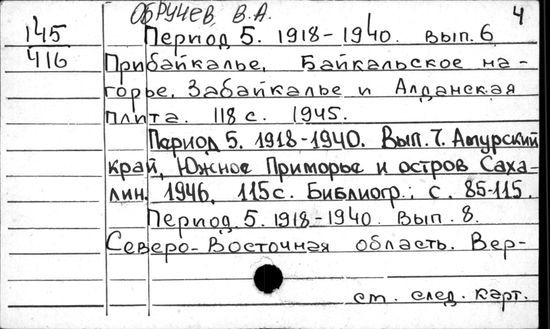 ОБРУЧЕВ, В.А. 4
145 Период 5. 1918-1940. вып. 6
416 Прибайкалье, Байкальское на-
горье, Забайкалье и Алданская
плита. 118 с. 1945.
Период 5. 1918-1940. Вып. 7. Амурский
край, Южное Приморье и остров Саха-
лин. 1946. 115с. Библиогр.: с. 85-115.
Период 5. 1918-1940. Вып. 8.
Северо-Восточная область. Вер-
см. след. карт.